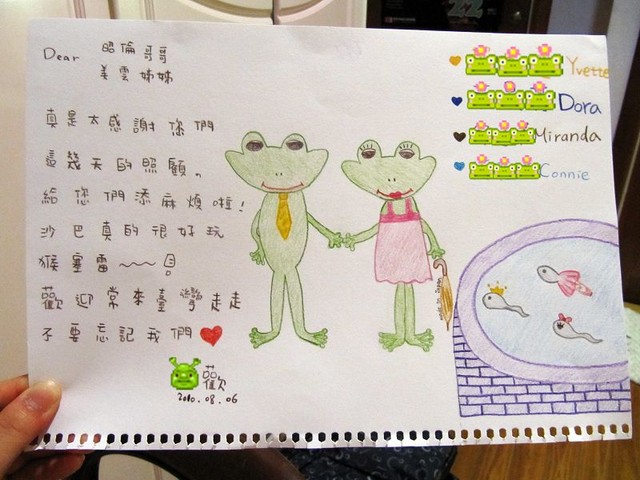 Dear 昭倫哥哥
美雲姊姊
真是太感謝您們
這幾天的照顧。
給您們添麻煩啦!
沙巴真的很好玩
猴塞雷~~
歡迎常來臺灣走走
不要忘記我們
歡
2010.08.06
Yvette
Dora
Miranda
Connie